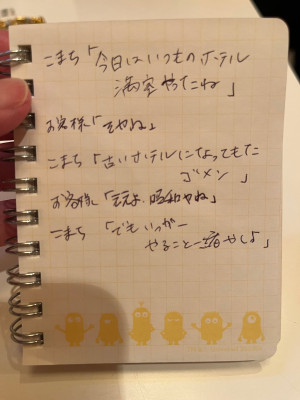 こまち「今日はいつものホテル
満室やったね」
お客様「そやね」
こまち「古いホテルになってもた
ゴメン」
お客様「ええよ 昭和やね」
こまち「でもいっかー
やること一緒やしよ」